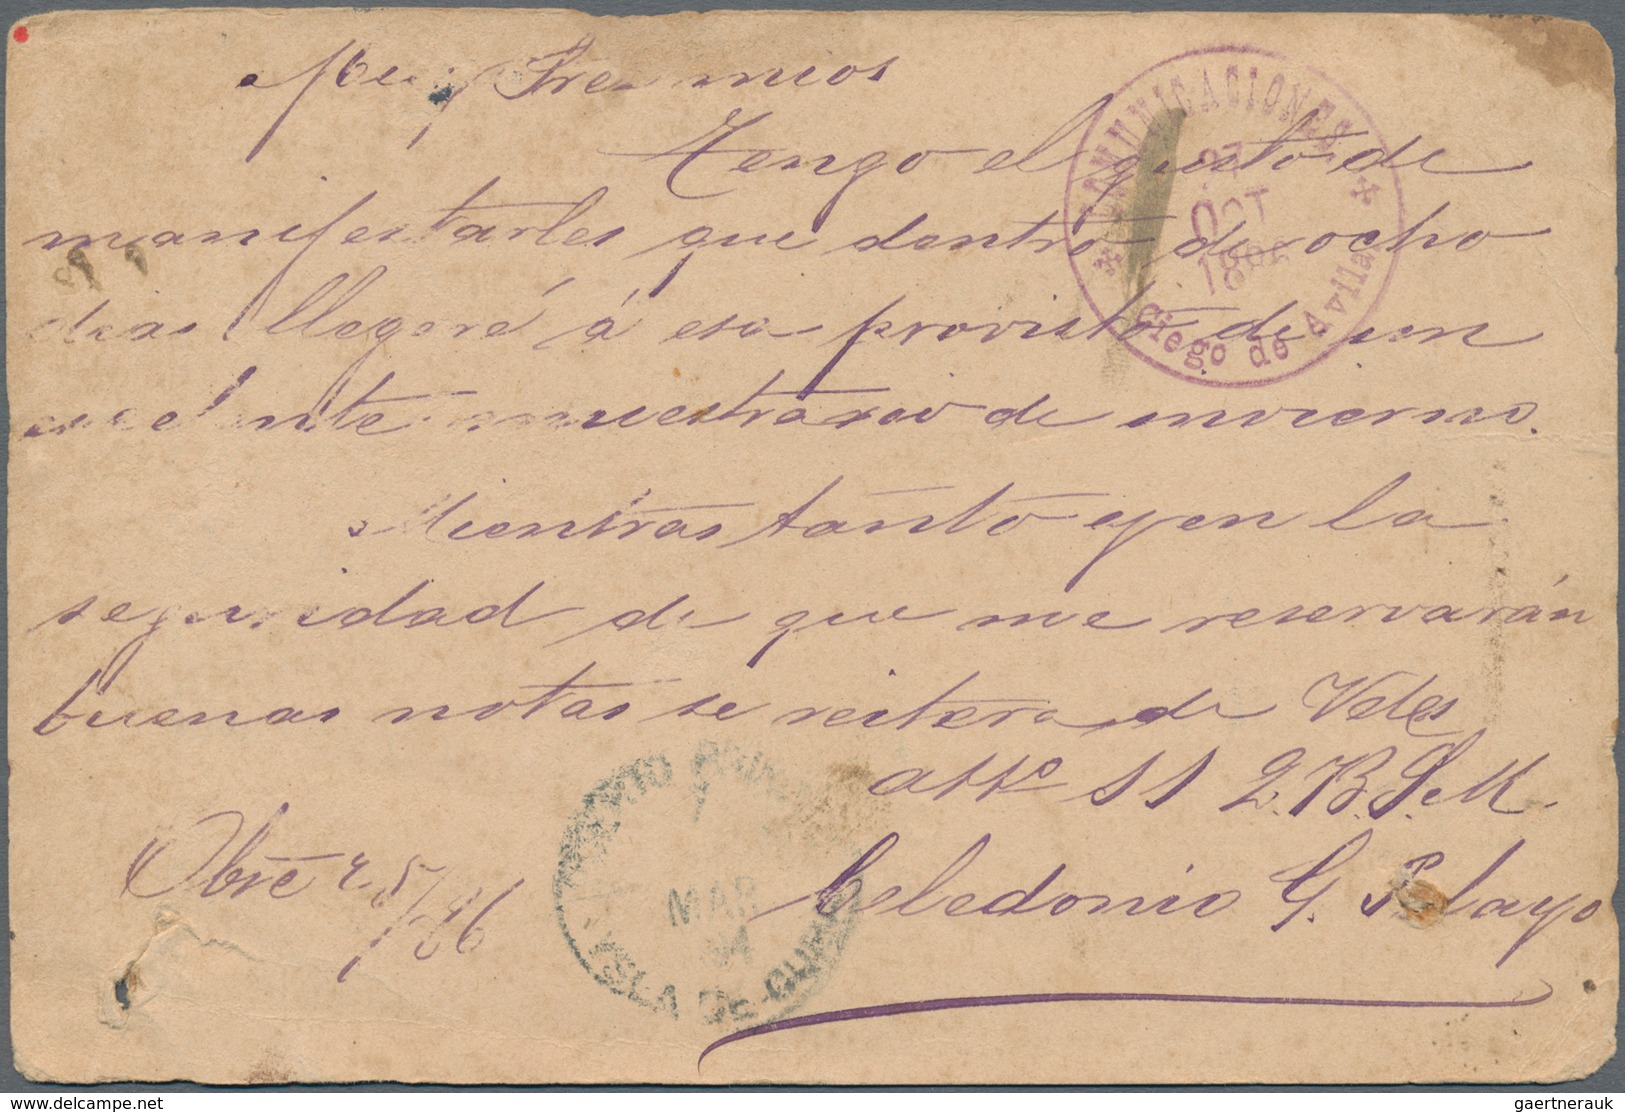 Muy Sres mios
Tengo el gusto de
manifestarles que dentro de ocho
dias llegaré á esa provisto de un
escelente muestrario de invierno.
Mientras tanto y en la
seguridad de que me reservarán
buenas notas se reitera de Vdes
atto SS Q.B.S.M.
Celedonio G. Pelayo
Obre 25/86
COMUNICACIONES
27
OCT
Ciego de Avila
MAR
YSLA DE CUBA
delcampe.net
gaertnerauk